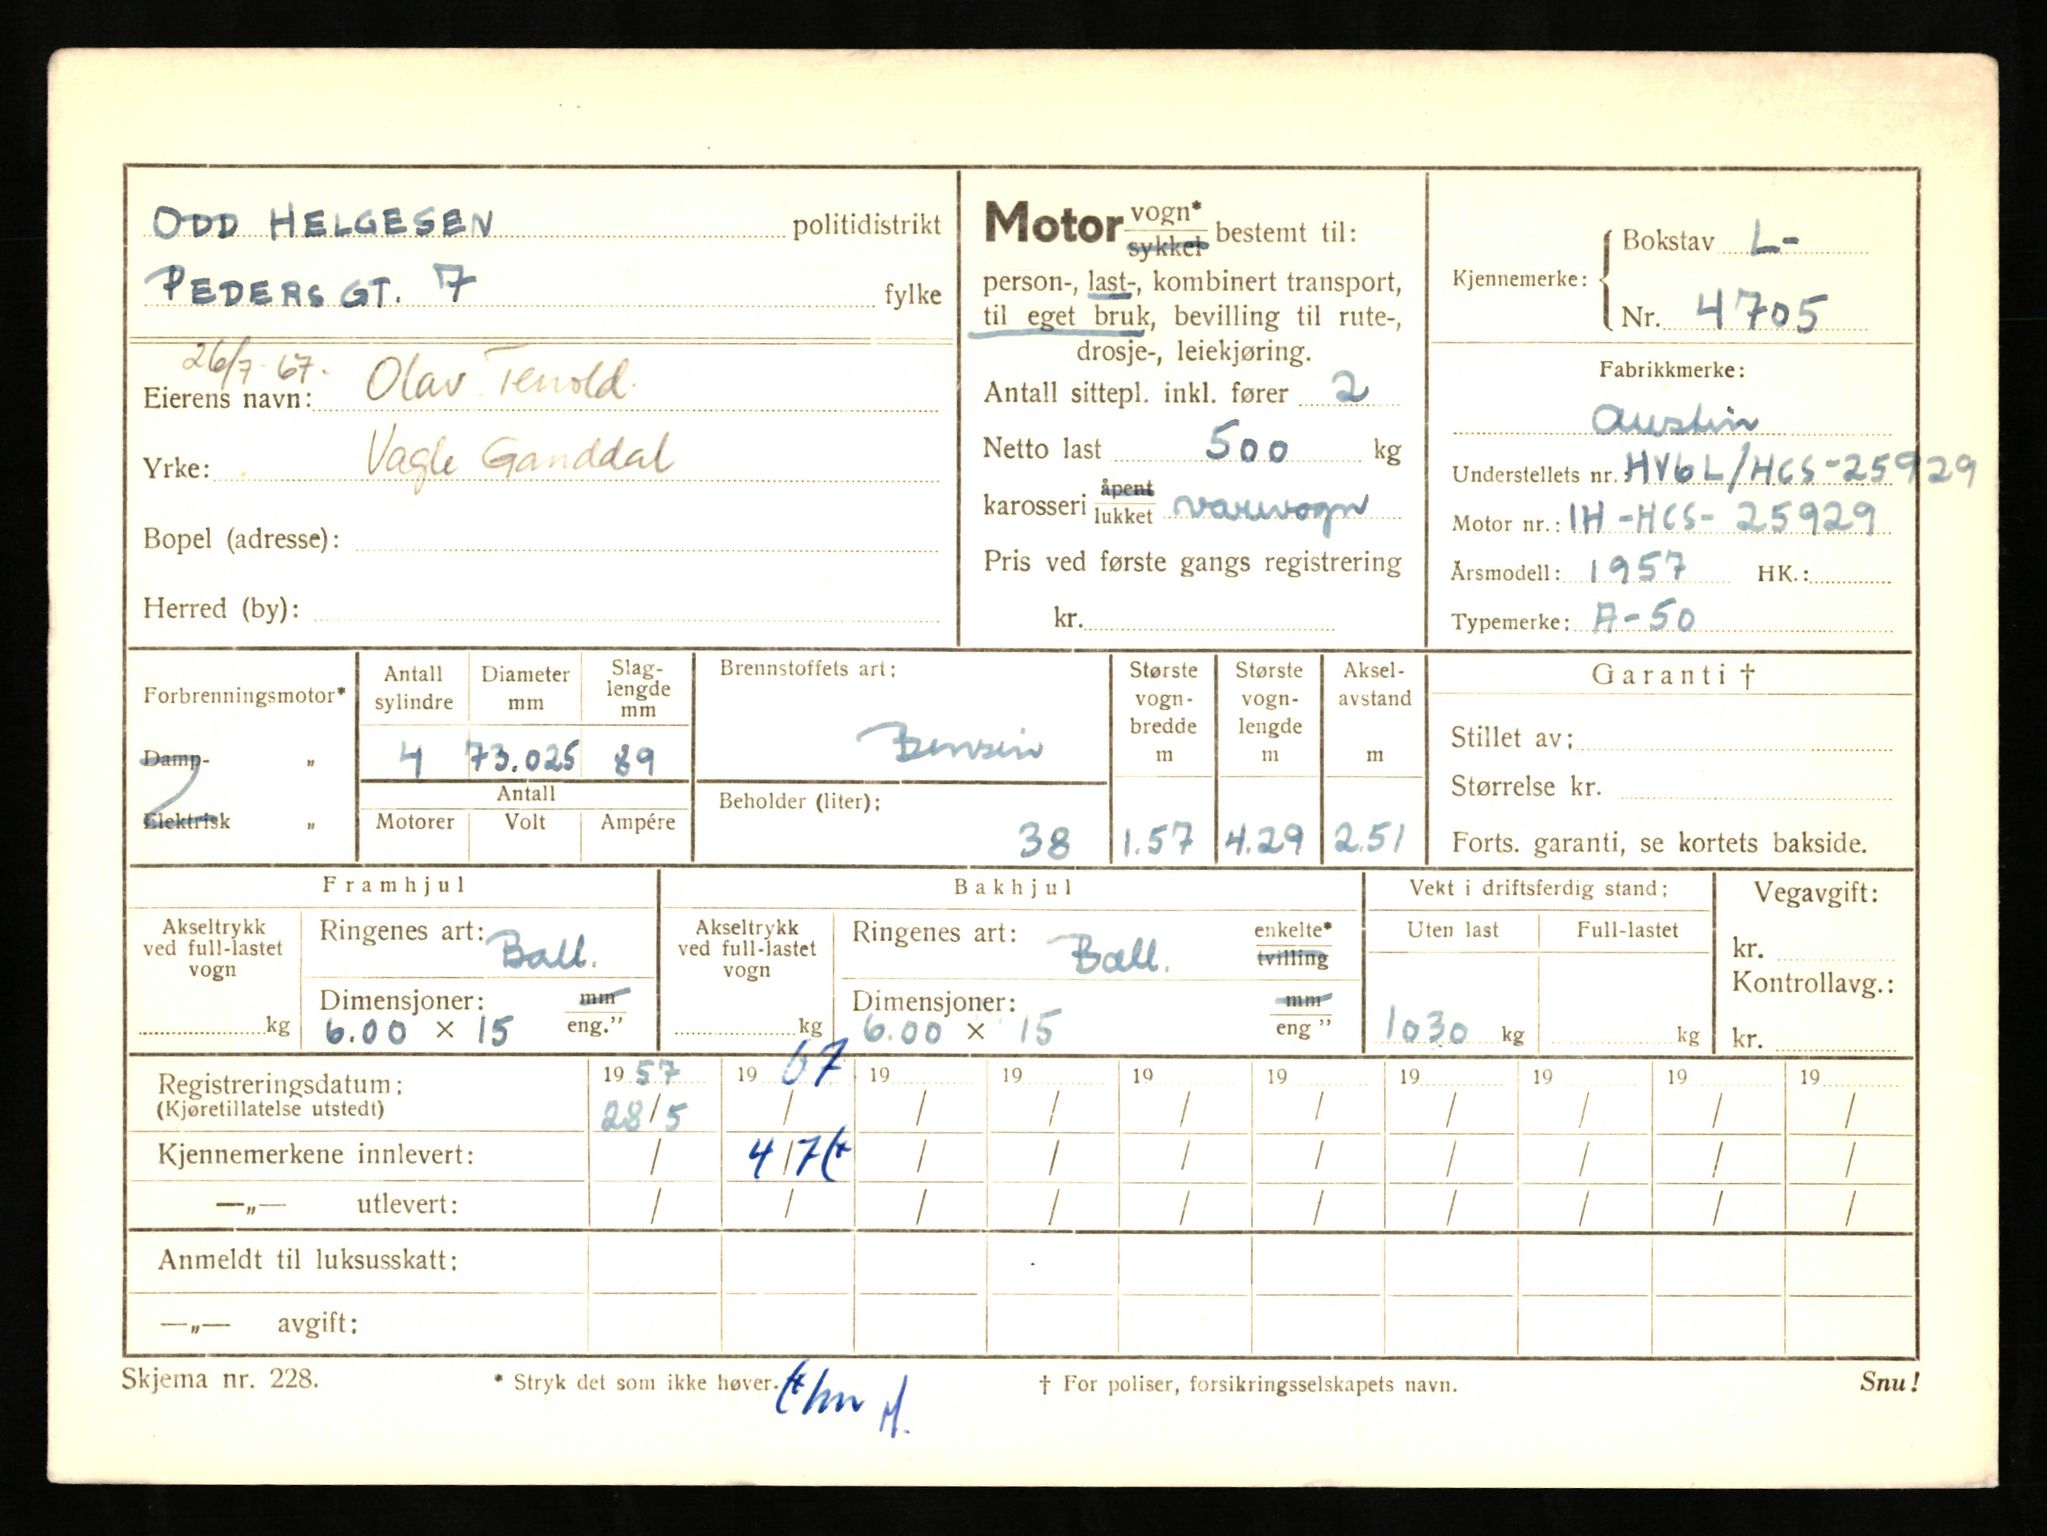 ODD HELGESEN politidistrikt
PEDERSGT. 7 fylke
26/7-67.
Eierens navn: Olav Tenold.
Yrke: Vagle Ganddal
Bopel (adresse):
Herred (by):
Motor vogn* sykkel bestemt til:
person-, last-, kombinert transport,
til eget bruk, bevilling til rute-,
drosje-, leiekjøring.
Antall sittepl. inkl. fører 2
Netto last 500 kg
karosseri åpent lukket varevogn
Pris ved første gangs registrering
kr.
Kjennemerke: Bokstav L-
Nr. 4705
Fabrikkmerke:
Austin
Understellets nr. HV6L/HCS-25929
Motor nr.: 1H-HCS-25929
Årsmodell: 1957 HK.:
Typemerke: A-50
Forbrenningsmotor*
Damp- „
Elektrisk „
Antall sylindre Diameter mm Slag-lengde mm
4 73.025 89
Antall
Motorer Volt Ampére
Brennstoffets art:
Bensin
Beholder (liter):
38
Største vogn-bredde m
1.57
Største vogn-lengde m
4.29
Aksel-avstand m
2.51
Garanti †
Stillet av:
Størrelse kr.
Forts. garanti, se kortets bakside.
Framhjul
Akseltrykk ved full-lastet vogn
kg
Ringenes art: Ball.
Dimensjoner: mm
6.00 × 15 eng.”
Bakhjul
Akseltrykk ved full-lastet vogn
kg
Ringenes art: Ball. enkelte* tvilling
Dimensjoner: mm
6.00 × 15 eng ”
Vekt i driftsferdig stand:
Uten last Full-lastet
1030 kg kg
Vegavgift:
kr.
Kontrollavg.:
kr.
Registreringsdatum: 19 57 19 67 19 19 19 19 19 19 19 19
(Kjøretillatelse utstedt) 28/5 / / / / / / / / /
Kjennemerkene innlevert: / 4/7 (* / / / / / / / /
—„— utlevert: / / / / / / / / / /
Anmeldt til luksusskatt:
—„— avgift:
Skjema nr. 228.
* Stryk det som ikke høver.
† For poliser, forsikringsselskapets navn.
Snu!